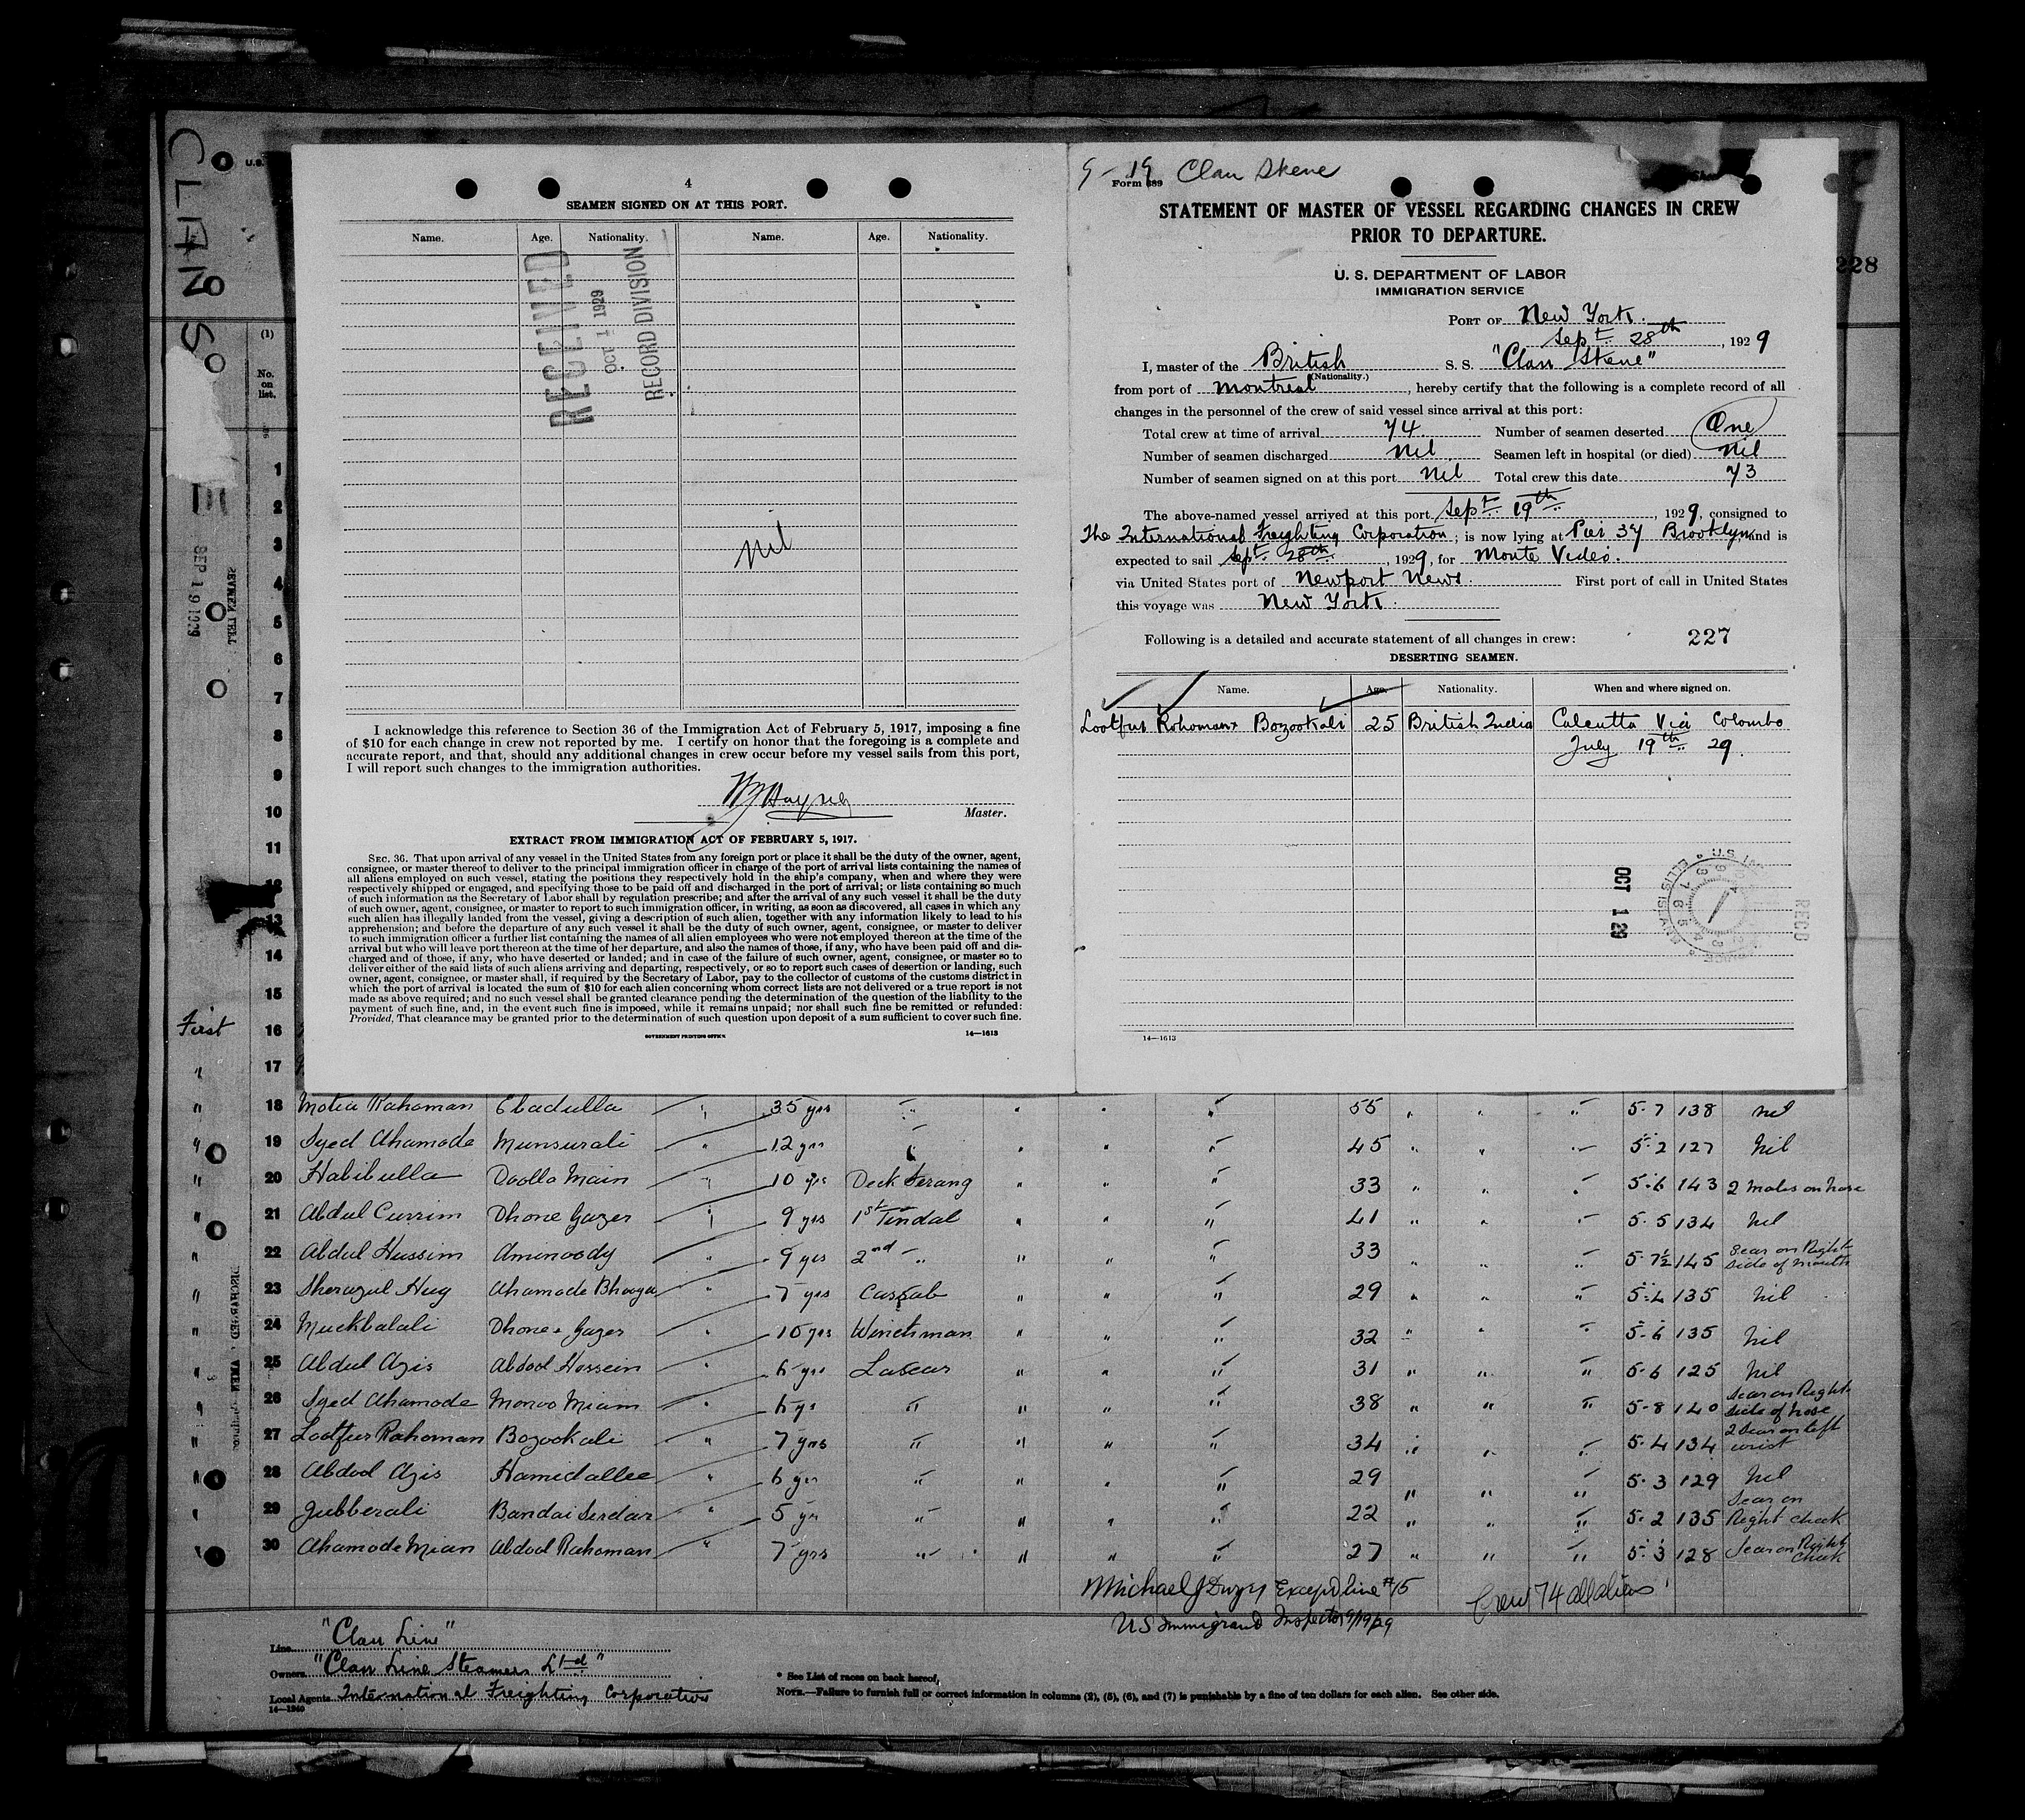 CLAN S
U.S.
4
SEAMEN SIGNED ON AT THIS PORT.
Name. Age. Nationality. Name. Age. Nationality.
RECEIVED
OCT 1 1929
RECORD DIVISION
nil
I acknowledge this reference to Section 36 of the Immigration Act of February 5, 1917, imposing a fine
of $10 for each change in crew not reported by me. I certify on honor that the foregoing is a complete and
accurate report, and that, should any additional changes in crew occur before my vessel sails from this port,
I will report such changes to the immigration authorities.
Master.
EXTRACT FROM IMMIGRATION ACT OF FEBRUARY 5, 1917.
SEC. 36. That upon arrival of any vessel in the United States from any foreign port or place it shall be the duty of the owner, agent,
consignee, or master thereof to deliver to the principal immigration officer in charge of the port of arrival lists containing the names of
all aliens employed on such vessel, stating the positions they respectively hold in the ship's company, when and where they were
respectively shipped or engaged, and specifying those to be paid off and discharged in the port of arrival; or lists containing so much
of such information as the Secretary of Labor shall by regulation prescribe; and after the arrival of any such vessel it shall be the duty
of such owner, agent, consignee, or master to report to such immigration officer, in writing, as soon as discovered, all cases in which any
such alien has illegally landed from the vessel, giving a description of such alien, together with any information likely to lead to his
apprehension; and before the departure of any such vessel it shall be the duty of such owner, agent, consignee, or master to deliver
to such immigration officer a further list containing the names of all alien employees who were not employed thereon at the time of the
arrival but who will leave port thereon at the time of her departure, and also the names of those, if any, who have been paid off and dis-
charged and of those, if any, who have deserted or landed; and in case of the failure of such owner, agent, consignee, or master so to
deliver either of the said lists of such aliens arriving and departing, respectively, or so to report such cases of desertion or landing, such
owner, agent, consignee, or master shall, if required by the Secretary of Labor, pay to the collector of customs of the customs district in
which the port of arrival is located the sum of $10 for each alien concerning whom correct lists are not delivered or a true report is not
made as above required; and no such vessel shall be granted clearance pending the determination of the question of the liability to the
payment of such fine, and, in the event such fine is imposed, while it remains unpaid; nor shall such fine be remitted or refunded:
Provided, That clearance may be granted prior to the determination of such question upon deposit of a sum sufficient to cover such fine.
GOVERNMENT PRINTING OFFICE 14—1613
9-19 Clan Skene
Form 689
STATEMENT OF MASTER OF VESSEL REGARDING CHANGES IN CREW
PRIOR TO DEPARTURE.
U. S. DEPARTMENT OF LABOR
IMMIGRATION SERVICE
228
PORT OF New York.
Sept. 28th, 1929
I, master of the British S. S. "Clan Skene"
(Nationality.)
from port of Montreal, hereby certify that the following is a complete record of all
changes in the personnel of the crew of said vessel since arrival at this port:
Total crew at time of arrival 74. Number of seamen deserted One
Number of seamen discharged nil Seamen left in hospital (or died) nil
Number of seamen signed on at this port nil Total crew this date 73
The above-named vessel arrived at this port Sept. 19th, 1929, consigned to
The International Freighting Corporation; is now lying at Pier 37 Brooklyn and is
expected to sail Sept. 28th, 1929, for Monte Video.
via United States port of Newport News. First port of call in United States
this voyage was New York.
Following is a detailed and accurate statement of all changes in crew: 227
DESERTING SEAMEN.
Name. Age. Nationality. When and where signed on.
Lootfur Rohoman Bozookali 25 British India Calcutta Via Colombo
July 19th 29.
OCT 1 29
RECD
14—1613
(1)
No.
on
list.
1
2
3
4
5
6
7
8
9
10
11
12
13
14
15
First 16
" 17
SEP 19 1929
" 18 Motia Rahoman Ebadulla " 35 yrs " " " " 55 " " " 5.7 138 nil
" 19 Syed Ahamode Munsurali " 12 yrs " " " " 45 " " " 5.2 127 Nil
" 20 Habibulla Doollo Main " 10 yrs Deck Serang " " " 33 " " " 5.6 143 2 moles on nose
" 21 Abdul Currim Dhone Gazer " 9 yrs 1st Tindal " " " 41 " " " 5.5 134 Nil
" 22 Abdul Hussim Aminoody " 9 yrs 2nd " " " " 33 " " " 5.7½ 145 Scar on Right side of mouth
" 23 Sherazul Huq Ahamode Bhooya " 7 yrs Cassab " " " 29 " " " 5.4 135 nil
" 24 Muckbalali Dhone Gazer " 10 yrs Winchman " " " 32 " " " 5.6 135 Nil
" 25 Abdul Azis Abdool Hossein " 6 yrs Lascar " " " 31 " " " 5.6 125 Nil
" 26 Syed Ahamode Monoo Miam " 6 yrs " " " " 38 " " " 5.8 140 Scar on Right side of nose
" 27 Lootfur Rahoman Bozookali " 7 yrs " " " " 34 " " " 5.4 134 2 Scar on left wrist
" 28 Abdool Azis Hamidallee " 6 yrs " " " " 29 " " " 5.3 129 Nil
" 29 Jubberali Bandai Serdar " 5 yrs " " " " 22 " " " 5.2 135 Scar on Right cheek
" 30 Ahamode Mian Abdool Rahoman " 7 yrs " " " " 27 " " " 5.3 128 Scar on Right cheek
Except line #15 Crew 74 all aliens
US Immigrant Inspector 9/19/29
Line "Clan Line"
Owners "Clan Line Steamers Ltd"
Local Agents International Freighting Corporation
14—1240
* See List of races on back hereof.
NOTE.—Failure to furnish full or correct information in columns (2), (5), (6), and (7) is punishable by a fine of ten dollars for each alien. See other side.